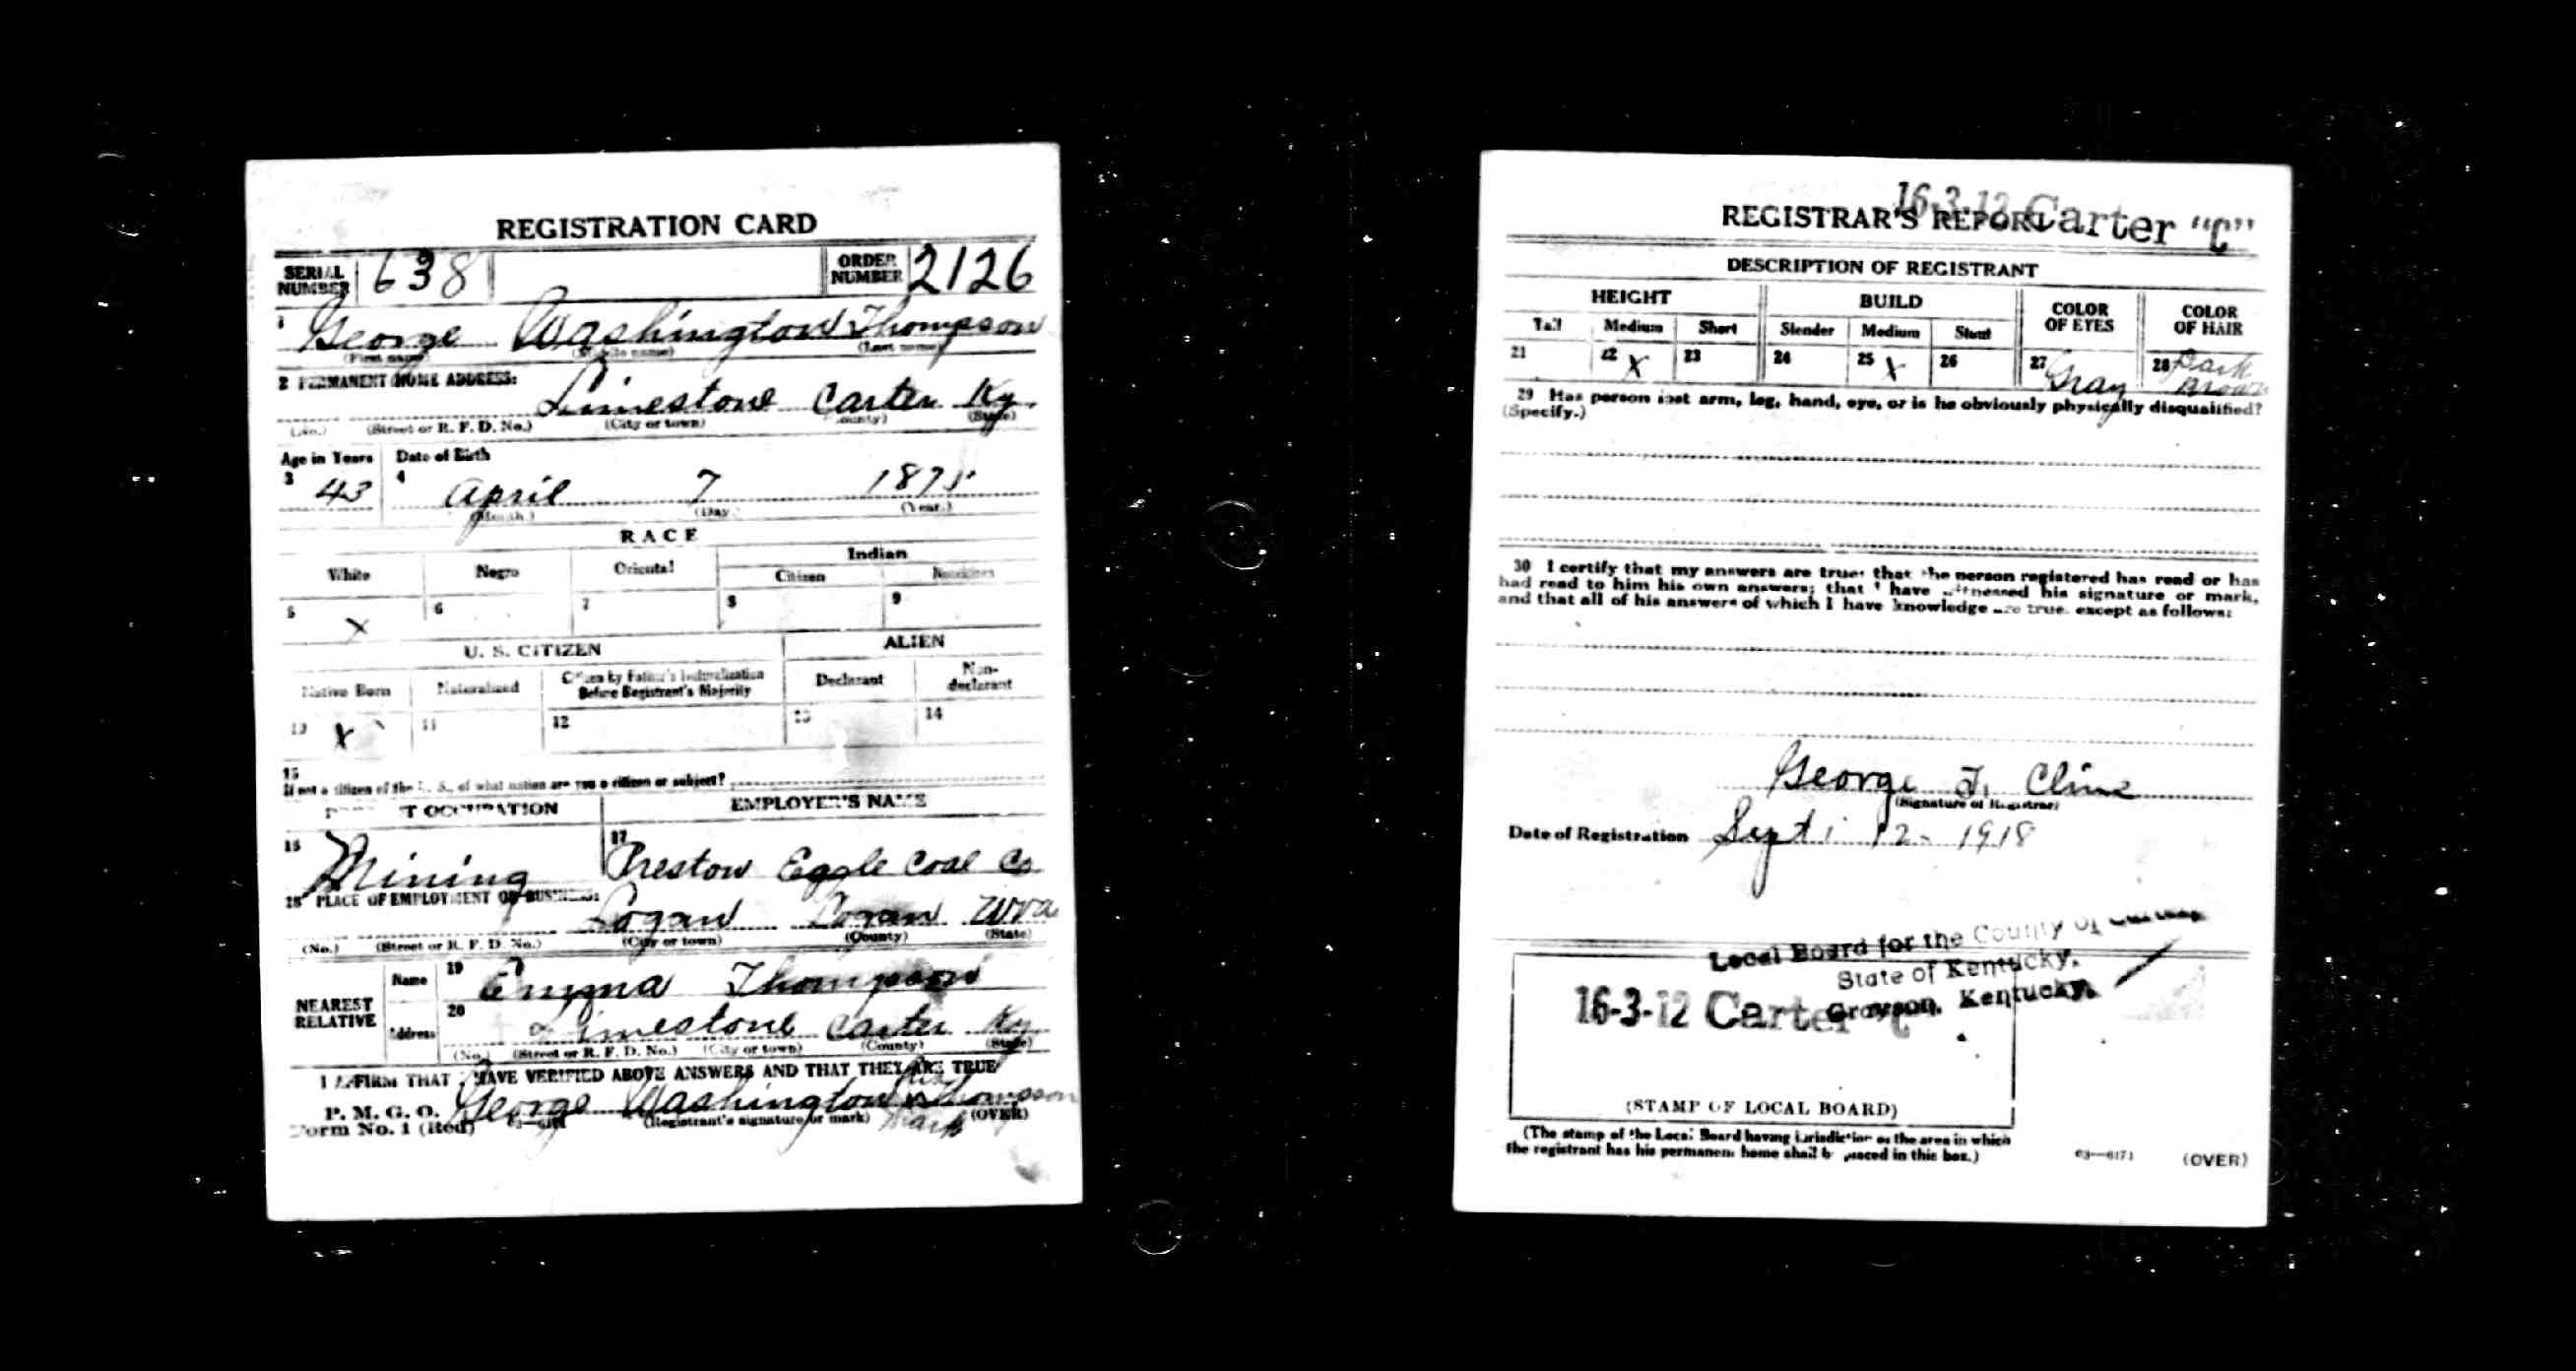 REGISTRATION CARD
SERIAL NUMBER 638 ORDER NUMBER 2126
1 George Washington Thompson
(First name) (Middle name) (Last name)
2 PERMANENT HOME ADDRESS:
Limestone Carter Ky.
(No.) (Street or R. F. D. No.) (City or town) (County) (State)
Age in Years Date of Birth
3 43 4 April 7 1875
(Month.) (Day.) (Year.)
RACE
White Negro Oriental Indian
Citizen Noncitizen
5 X 6 7 8 9
U. S. CITIZEN ALIEN
Native Born Naturalized Citizen by Father's Naturalization Before Registrant's Majority Declarant Non-declarant
10 X 11 12 13 14
15
If not a citizen of the U. S., of what nation are you a citizen or subject?
PRESENT OCCUPATION EMPLOYER'S NAME
16 Mining 17 Preston Eggle Coal Co
18 PLACE OF EMPLOYMENT OR BUSINESS:
Logan Logan W Va
(No.) (Street or R. F. D. No.) (City or town) (County) (State)
NEAREST RELATIVE
Name 19 Emma Thompson
Address 20 Limestone Carter Ky.
(No.) (Street or R. F. D. No.) (City or town) (County) (State)
I AFFIRM THAT I HAVE VERIFIED ABOVE ANSWERS AND THAT THEY ARE TRUE
P. M. G. O. George Washington his x Thompson
Form No. 1 (Red) (Registrant's signature or mark) mark (OVER)
16-3-12 Carter "C"
REGISTRAR'S REPORT
DESCRIPTION OF REGISTRANT
HEIGHT BUILD COLOR OF EYES COLOR OF HAIR
Tall Medium Short Slender Medium Stout
21 22 X 23 24 25 X 26 27 Gray 28 Dark Brown
29 Has person lost arm, leg, hand, eye, or is he obviously physically disqualified?
(Specify.)
30 I certify that my answers are true; that the person registered has read or has
had read to him his own answers; that I have witnessed his signature or mark,
and that all of his answers of which I have knowledge are true, except as follows:
George F. Cline
(Signature of Registrar)
Date of Registration Sept. 12 - 1918
Local Board for the County of Carter,
State of Kentucky,
Grayson, Kentucky.
16-3-12 Carter "C"
(STAMP OF LOCAL BOARD)
(The stamp of the Local Board having jurisdiction of the area in which
the registrant has his permanent home shall be placed in this box.)
03-6171 (OVER)